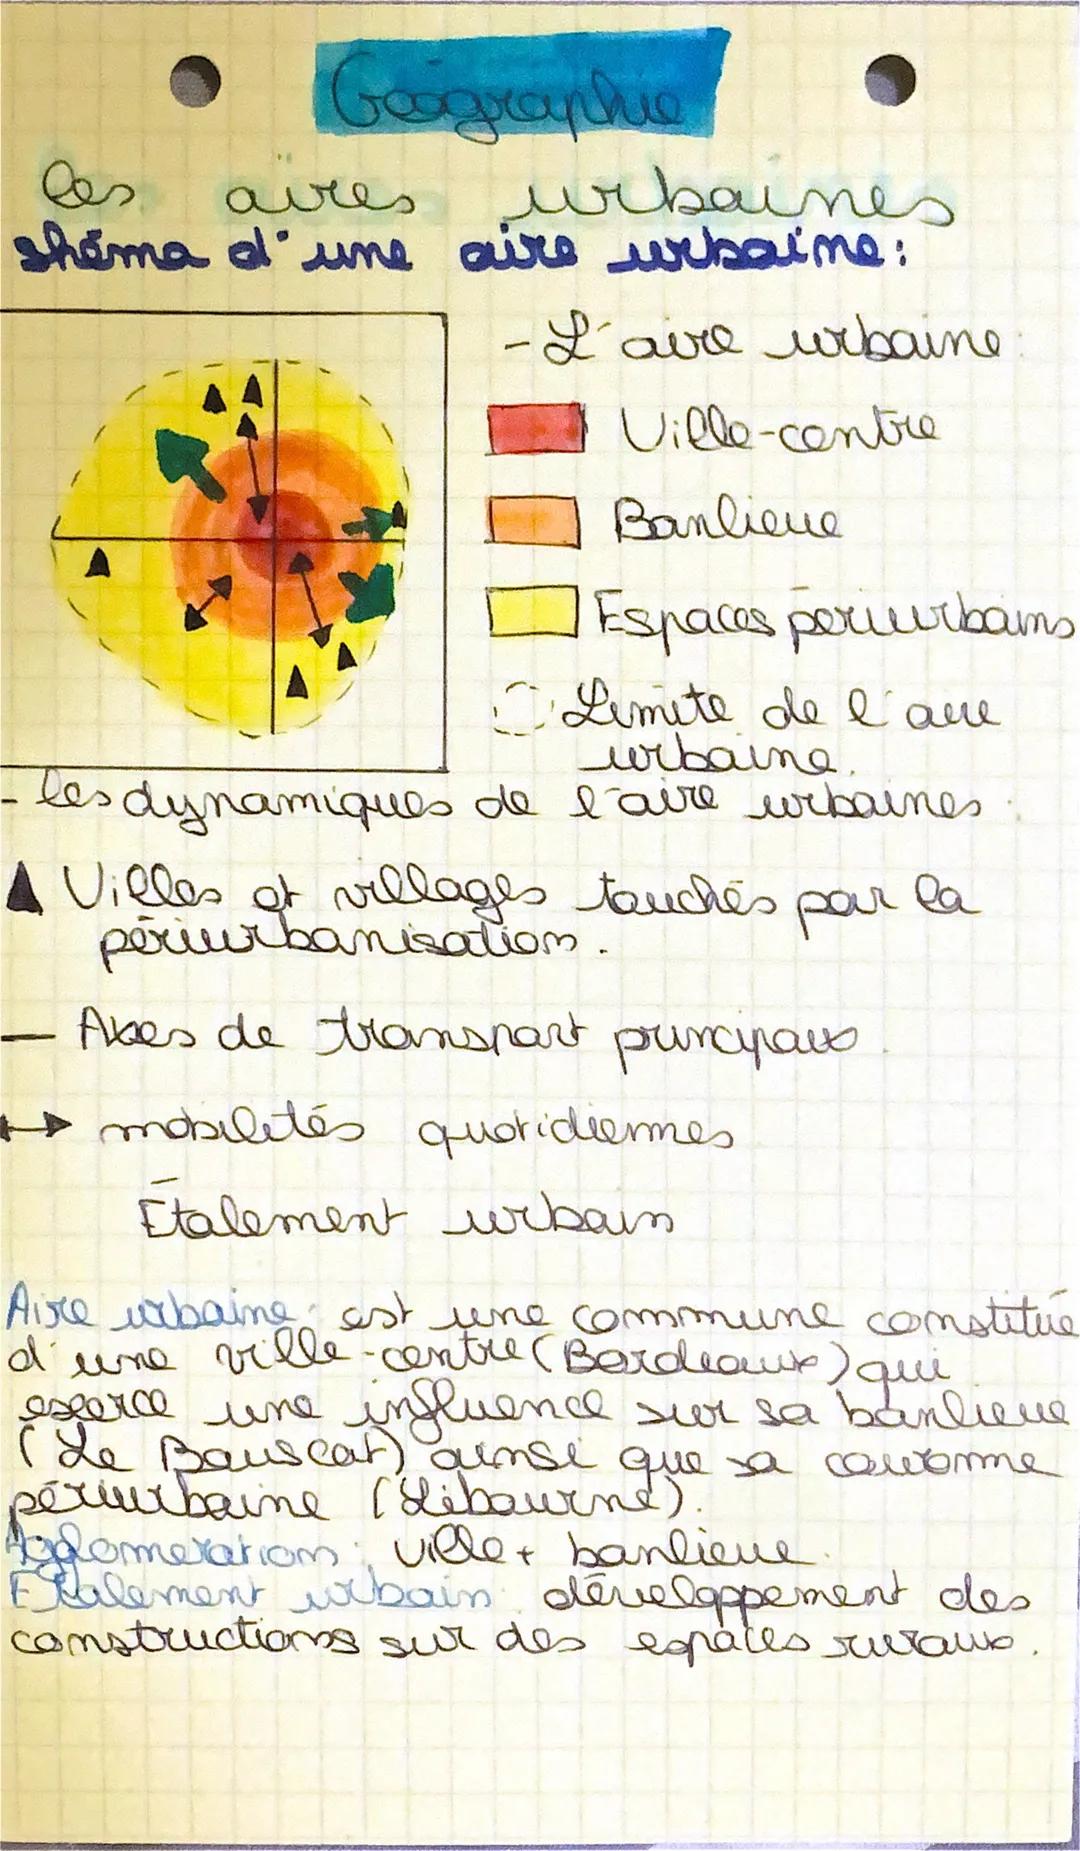 Géographie
les aires urbaines
shéma d'une aire urbaine:
- L'aire urbaine:
Ville-centre
Banlieue
Espaces périurbains
Limite de l'aire
urbaine.
- les dynamiques de l'aire urbaines:
Villes et villages touchés par la
périurbanisation.
Axes de transport principaux.
mobilités quotidiennes
Étalement urbain
Aire urbaine: est une commune constitué
d'une ville-centre (Bordeaux) qui
exerce une influence sur sa banlieue
(Le Bouscat) ainsi que sa couronne
périurbaine (Libourne).
Agglomeration: ville + banlieue.
Etalement urbain: dévelappement des
constructions sur des espaces ruraux.